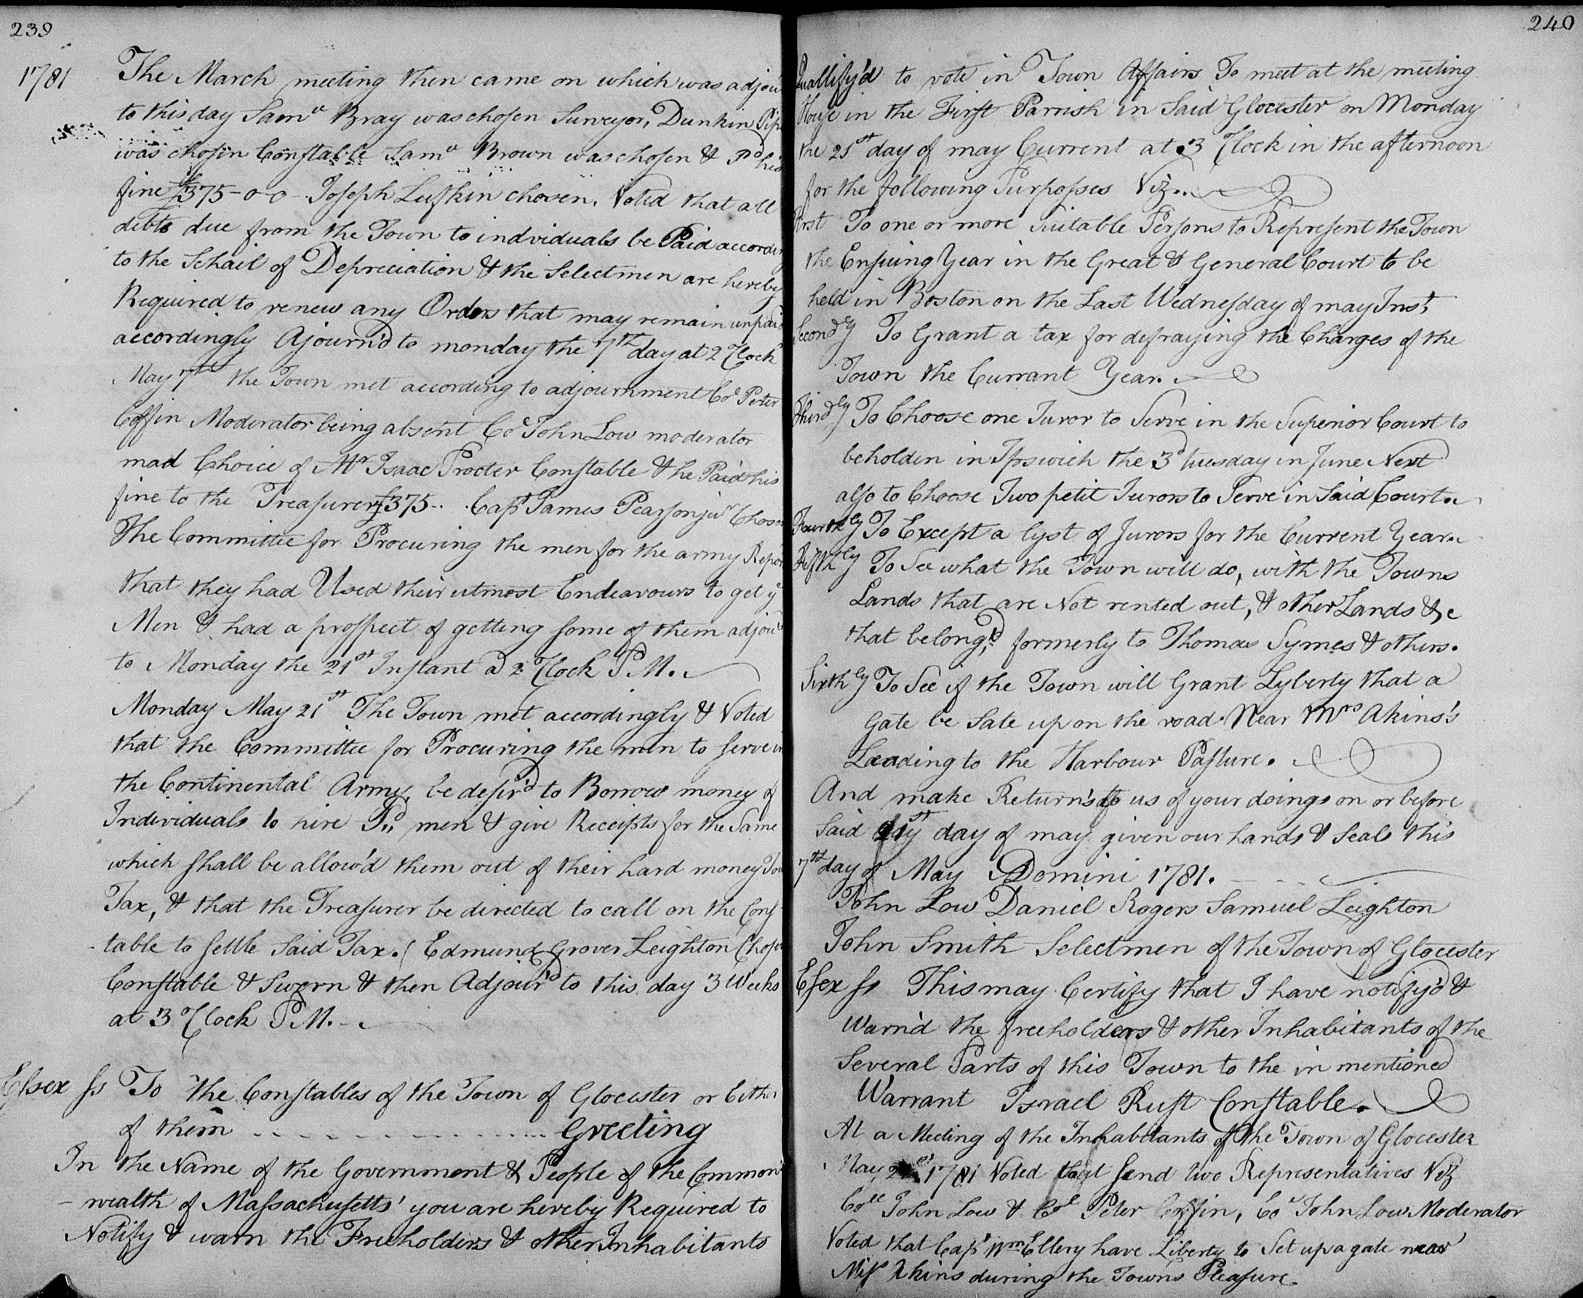 239
1781 The March meeting then came on which was adjou
to this day Saml Bray was chosen Surveyor, Dunkin Pip
was chosen Constable Saml Brown was chosen & Pd his
fine £375-0-0 Joseph Lufkin chosen. Voted that all
debts due from the Town to individuals be Paid accordin
to the Schail of Depreciation & the Selectmen are hereby
Required to renew any Orders that may remain unpaid
accordingly Ajourn'd to monday the 7th day at 2 Clock
May 7th the Town met according to adjournment Col Peter
Coffin Moderator being absent Col John Low moderator
mad Choice of Mr Isaac Procter Constable & he Paid his
fine to the Treasurer £375.. Capt James Pearson jur Chosen
The Committee for Procuring the men for the army Repor
that they had Used their utmost Endeavours to get ye
Men & had a prospect of getting some of them adjou
to Monday the 21st Instant a 2 Clock P M.
Monday May 21st The Town met accordingly & Voted
that the Committee for Procuring the men to serve in
the Continental Army, be desir'd to Borrow money of
Individuals to hire Sd men & give Receipts for the Same
which shall be allow'd them out of their hard money Tow
Tax, & that the Treasurer be directed to call on the Cons
table to settle Said Tax. Edmund Grover Leighton Chosen
Constable & Sworn & then Adjour'd to this day 3 Weeks
at 3 Clock P M.
Essex ss To the Constables of the Town of Glocester or Either
of them Greeting
In the Name of the Government & People of the Common
-wealth of Massachusetts' you are hereby Required to
Notify & warn the Freeholders & other Inhabitants
240
Quallify'd to vote in Town Affairs To meet at the meeting
House in the First Parrish in Said Glocester on Monday
the 21st day of may Current at 3 Clock in the afternoon
for the following Purposses Viz..
First To one or more Suitable Persons to Represent the Town
the Ensuing Year in the Great & General Court to be
held in Boston on the Last Wednesday of may Inst
Secondly To Grant a tax for defraying the Charges of the
Town the Currant Year.
Thirdly To Choose one Juror to Serve in the Superior Court to
beholden in Ipswich the 3d Tuesday in June Next
also to Choose Two petit Jurors to Serve in Said Court
Fourthly To Except a lyst of Jurors for the Current Year
Fifthly To See what the Town will do, with the Towns
Lands that are Not rented out, & other Lands &c
that belong'd formerly to Thomas Symes & others.
Sixthly To See if the Town will Grant Lyberty that a
Gate be Sate up on the road Near Mrs Akins's
Leading to the Harbour Pasture.
And make Return's to us of your doings on or before
Said 21st day of may given our hands & Seals this
7th day of May Domini 1781.
John Low Daniel Rogers Samuel Leighton
John Smith Selectmen of the Town of Glocester
Essex ss This may Certify that I have notify'd &
Warn'd the freeholders & other Inhabitants of the
Several Parts of this Town to the in mentioned
Warrant Israel Rust Constable.
At a Meeting of the Inhabitants of the Town of Glocester
May 21st 1781 Voted to send two Representatives Viz
Coll John Low & Col Peter Coffin, Col John Low Moderator
Voted that Capt Wm Ellery have Liberty to Set up a gate near
Mrs Akins during the Towns Pleasure